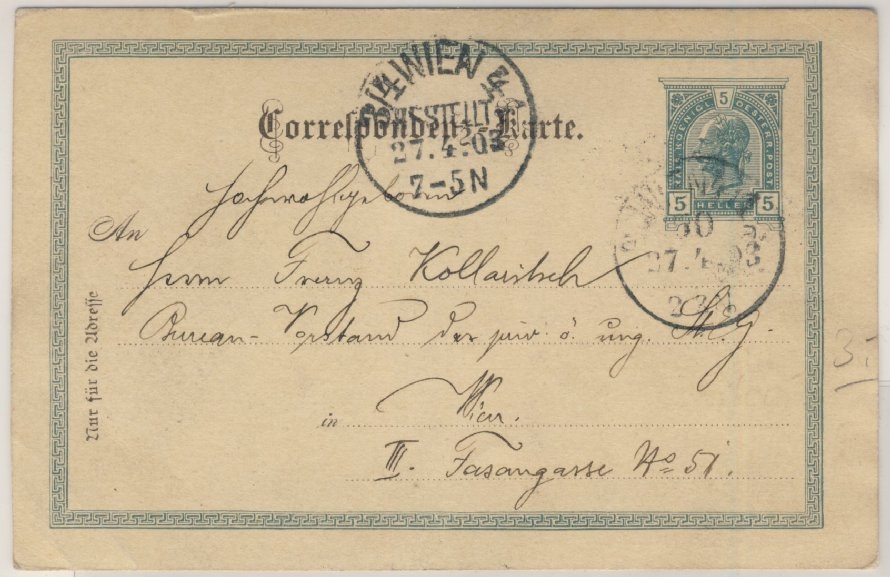 Correspondenz-Karte.
KAIS. KOENIGL. OESTERR. POST
5
5 HELLER 5
3/4 WIEN 4
BESTELLT
27.4.03
7-5N
27.4.03
Hochwohlgeboren
An
Herrn Franz Kollaritsch
Bureau-Vorstand der priv. ö. ung.
in Wien.
III. Fasangasse No 51.
Nur für die Adresse
3